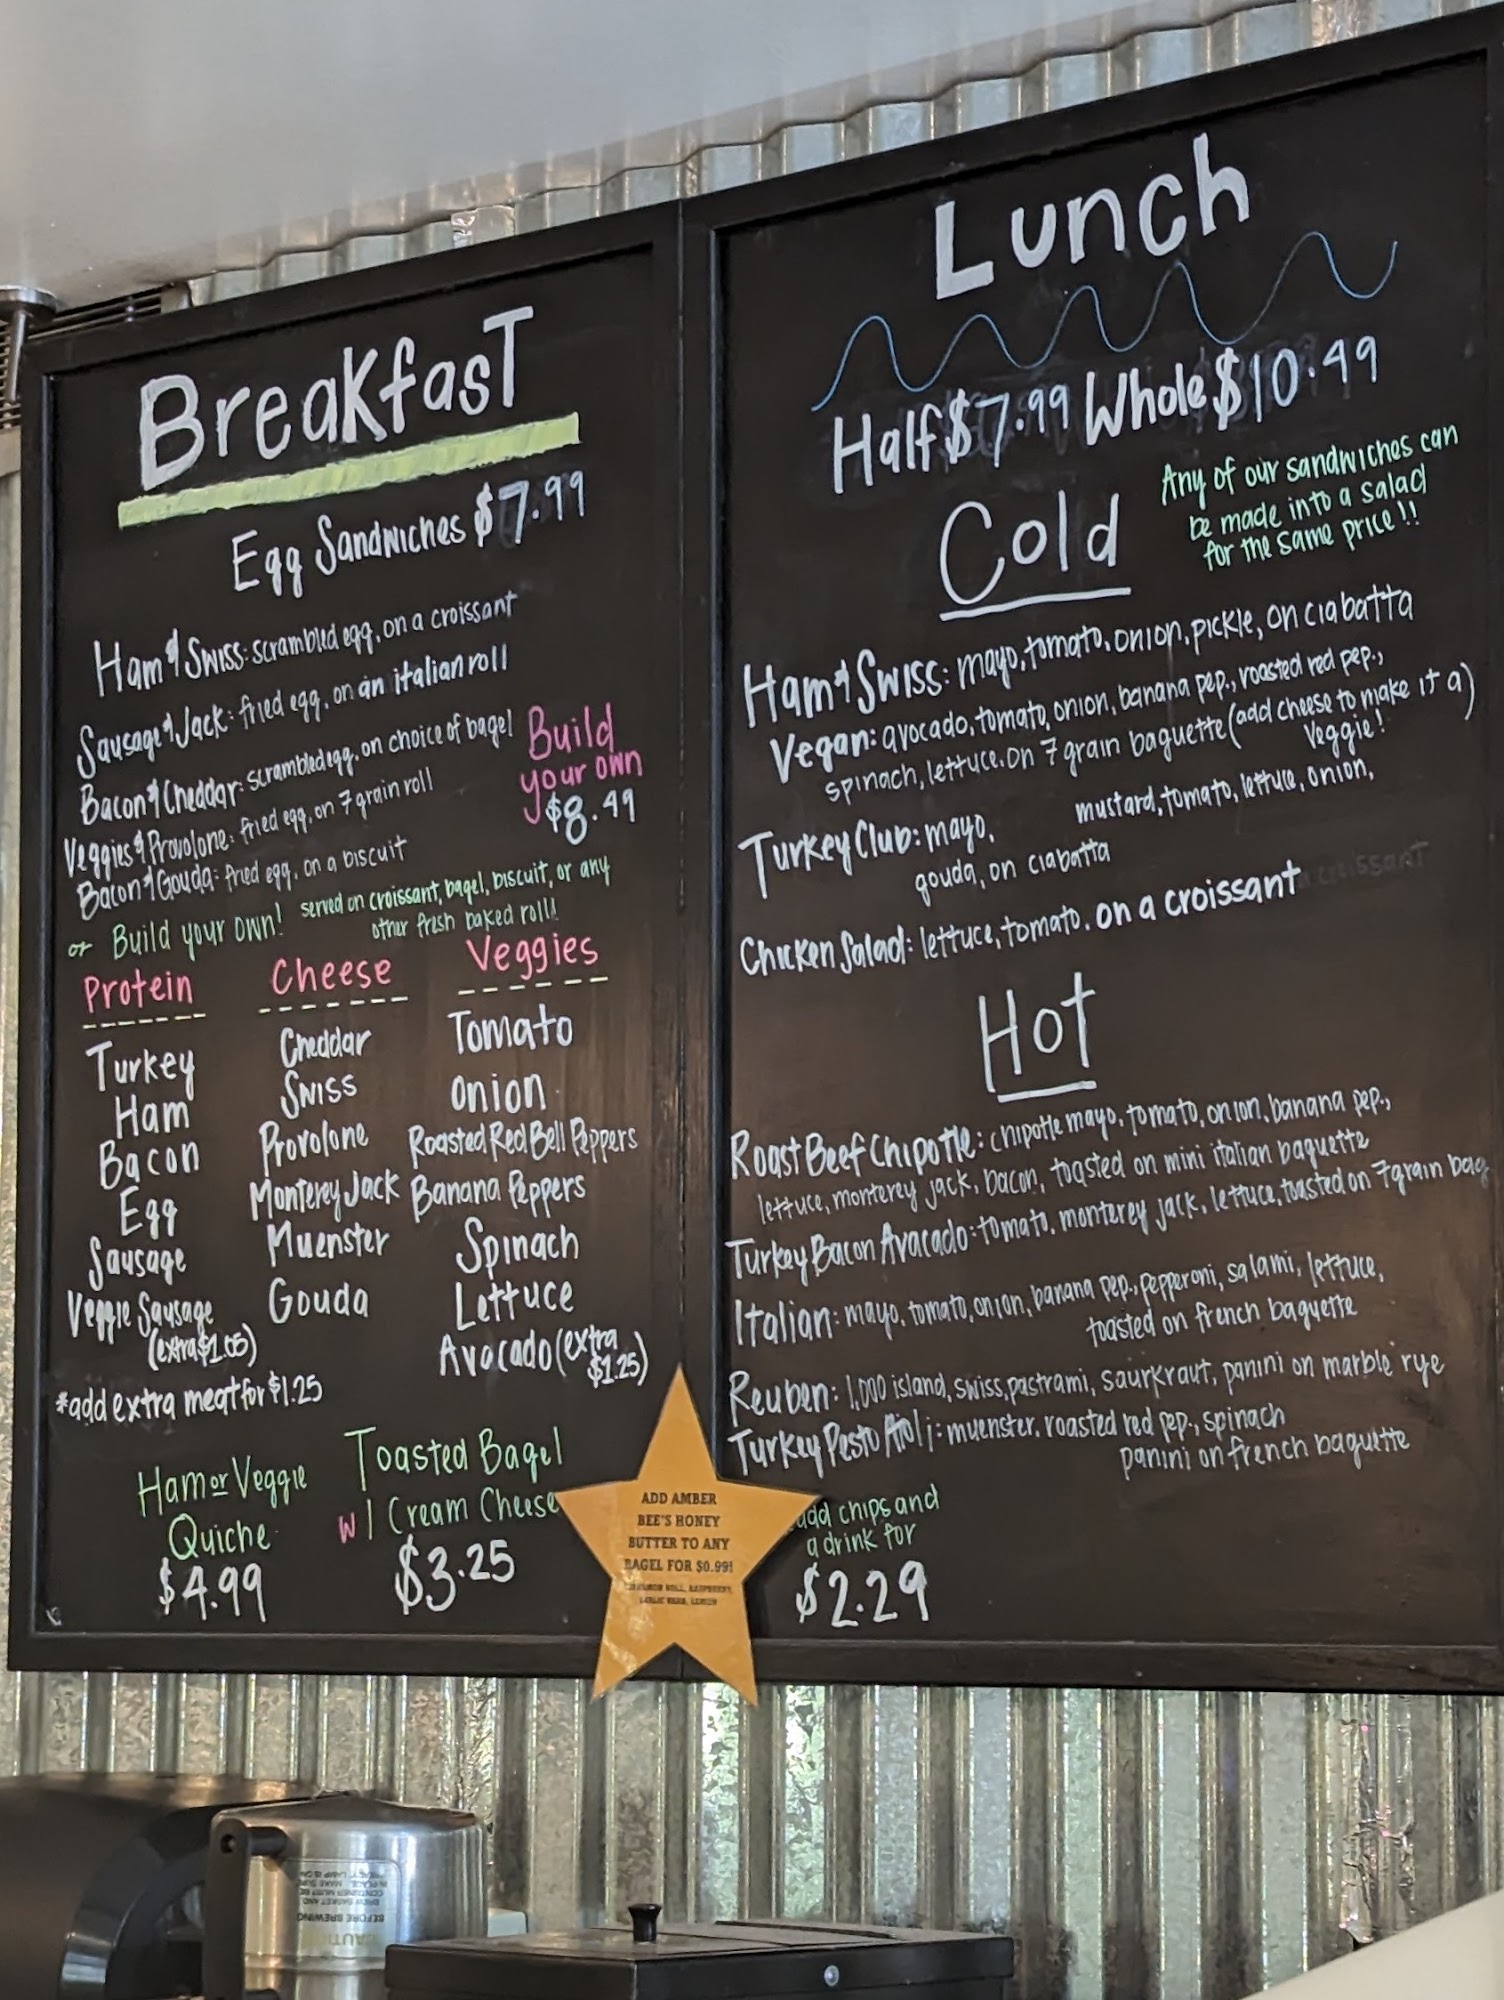 Breakfast
Egg Sandwiches $7.99
Ham & Swiss: scrambled egg, on a croissant
Sausage & Jack: fried egg, on an italian roll
Bacon & Cheddar: scrambled egg, on choice of bagel
Veggies & Provolone: fried egg, on 7 grain roll
Bacon & Gouda: fried egg, on a biscuit
Build
your own
$8.49
or Build your own! served on croissant, bagel, biscuit, or any
other fresh baked roll!
Protein
Turkey
Ham
Bacon
Egg
Sausage
Veggie Sausage
(extra $1.05)
*add extra meat for $1.25
Cheese
Cheddar
Swiss
Provolone
Monterey Jack
Muenster
Gouda
Veggies
Tomato
Onion
Roasted Red Bell Peppers
Banana Peppers
Spinach
Lettuce
Avocado (extra
$1.25)
Ham or Veggie
Quiche
$4.99
Toasted Bagel
w/ Cream Cheese
$3.25
ADD AMBER
BEE'S HONEY
BUTTER TO ANY
BAGEL FOR $0.99!
Lunch
Half $7.99 Whole $10.49
Any of our sandwiches can
be made into a salad
for the same price!!
Cold
Ham & Swiss: mayo, tomato, onion, pickle, on ciabatta
Vegan: avocado, tomato, onion, banana pep., roasted red pep.,
spinach, lettuce, on 7 grain baguette (add cheese to make it a)
veggie!
Turkey Club: mayo, mustard, tomato, lettuce, onion,
gouda, on ciabatta
Chicken Salad: lettuce, tomato, on a croissant
Hot
Roast Beef Chipotle: chipotle mayo, tomato, onion, banana pep.,
lettuce, monterey jack, bacon, toasted on mini italian baguette
Turkey Bacon Avacado: tomato, monterey jack, lettuce, toasted on 7 grain bag
Italian: mayo, tomato, onion, banana pep., pepperoni, salami, lettuce,
toasted on french baguette
Reuben: 1,000 island, swiss, pastrami, saurkraut, panini on marble rye
Turkey Pesto Aioli: muenster, roasted red pep., spinach
panini on french baguette
add chips and
a drink for
$2.29
BEFORE BREWING